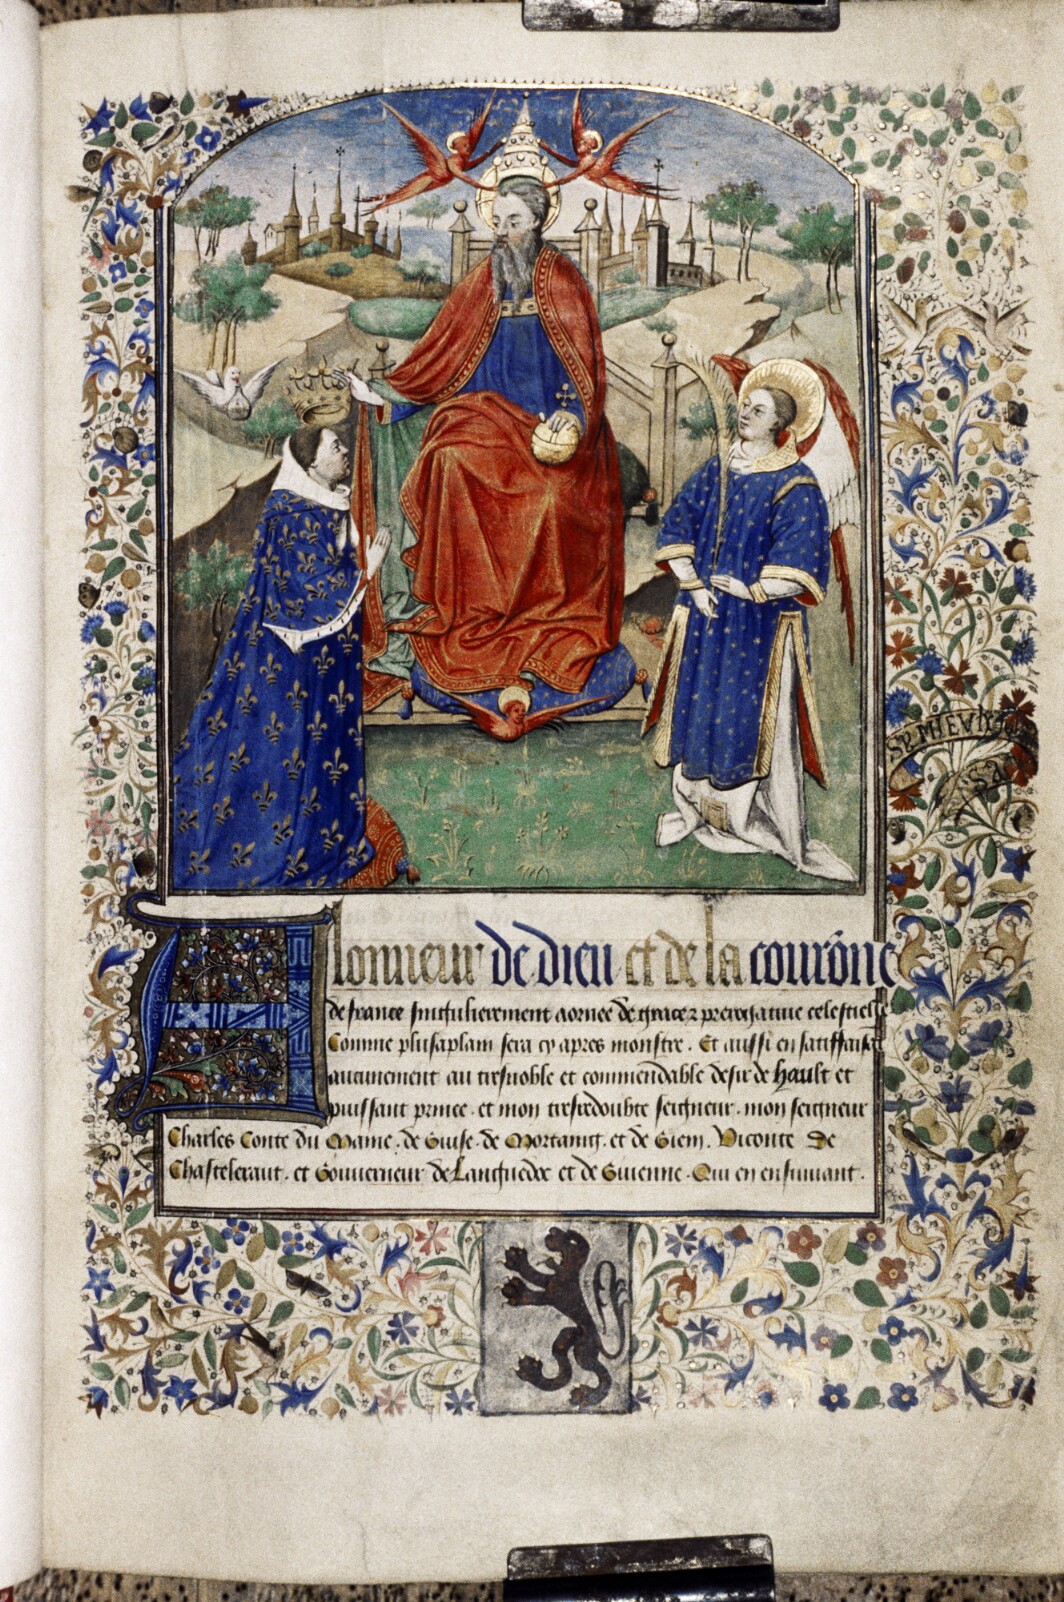 A lonneur de dieu et de la courōne
de france singulierement aornee de grace z prerogatiue celestielle
Comme plusaplain sera cy apres monstre. Et aussi en satiffaisāt
aucunement au tresnoble et commendable desir de hault et
puissant prince. et mon tresredoubte seigneur. mon seigneur
Charles Conte du Maine. de Guise. de Mortaing. et de Gien. Viconte de
Chasteleraut. et Gouuerneur de Languedoc et de Guienne. Qui en ensuiuant.